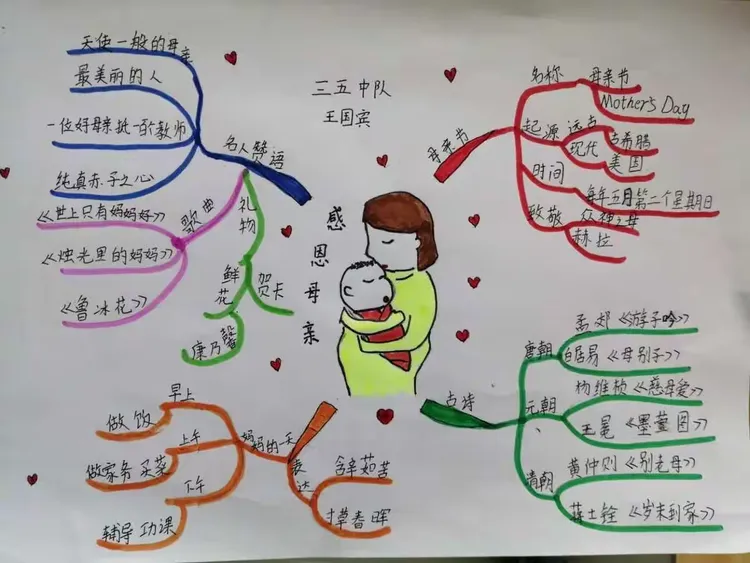 三五中队
王国宾
感恩母亲
母亲节
名称
母亲节
Mother's Day
起源
远古
古希腊
现代
美国
时间
每年五月第二个星期日
致敬
众神之母
赫拉
古诗
唐朝
孟郊《游子吟》
白居易《母别子》
元朝、
杨维桢《慈母爱》
王冕《墨萱图》
清朝
黄仲则《别老母》
蒋士铨《岁末到家》
妈妈的一天
早上
做饭
上午
做家务 买菜
下午
辅导功课
表达
含辛茹苦
寸草春晖
名人赞语
天使一般的母亲
最美丽的人
一位好母亲抵一百个教师
纯真赤子之心
歌曲
《世上只有妈妈好》
《烛光里的妈妈》
《鲁冰花》
礼物
鲜花
康乃馨
贺卡